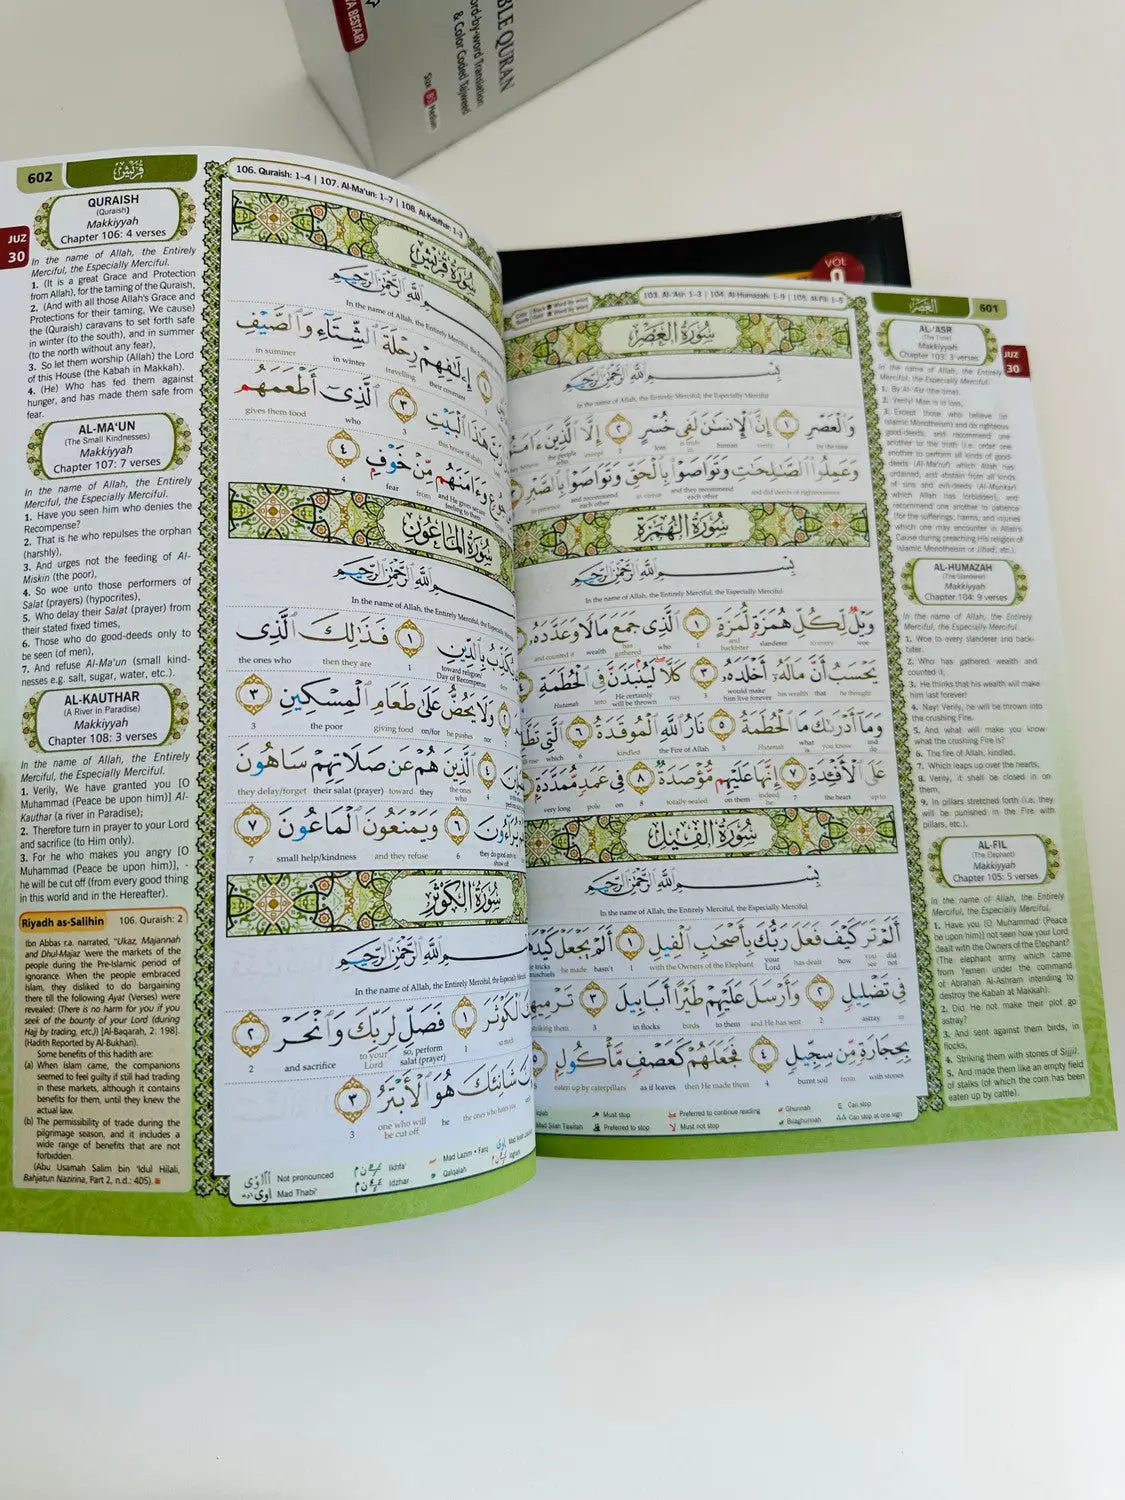 A BESTARI
BLE QURAN
ord-by-word Translation
& Color Coded Tajweed
Size B5 Medium
VOL
602
قريش
QURAISH
(Quraish)
Makkiyyah
Chapter 106: 4 verses
JUZ
30
In the name of Allah, the Entirely
Merciful, the Especially Merciful.
1. (It is a great Grace and Protection
from Allah), for the taming of the Quraish,
2. (And with all those Allah's Grace and
Protections for their taming, We cause)
the (Quraish) caravans to set forth safe
in winter (to the south), and in summer
(to the north without any fear),
3. So let them worship (Allah) the Lord
of this House (the Kabah in Makkah).
4. (He) Who has fed them against
hunger, and has made them safe from
fear.
AL-MA'UN
(The Small Kindnesses)
Makkiyyah
Chapter 107: 7 verses
In the name of Allah, the Entirely
Merciful, the Especially Merciful.
1. Have you seen him who denies the
Recompense?
2. That is he who repulses the orphan
(harshly),
3. And urges not the feeding of Al-
Miskin (the poor),
4. So woe unto those performers of
Salat (prayers) (hypocrites),
5. Who delay their Salat (prayer) from
their stated fixed times,
6. Those who do good-deeds only to
be seen (of men),
7. And refuse Al-Ma'un (small kind-
nesses e.g. salt, sugar, water, etc.).
AL-KAUTHAR
(A River in Paradise)
Makkiyyah
Chapter 108: 3 verses
In the name of Allah, the Entirely
Merciful, the Especially Merciful.
1. Verily, We have granted you [O
Muhammad (Peace be upon him)] Al-
Kauthar (a river in Paradise);
2. Therefore turn in prayer to your Lord
and sacrifice (to Him only).
3. For he who makes you angry [O
Muhammad (Peace be upon him)], -
he will be cut off (from every good thing
in this world and in the Hereafter).
Riyadh as-Salihin 106. Quraish: 2
Ibn Abbas r.a. narrated, "Ukaz, Majannah
and Dhul-Majaz 'were the markets of the
people during the Pre-Islamic period of
ignorance. When the people embraced
Islam, they disliked to do bargaining
there till the following Ayat (Verses) were
revealed: (There is no harm for you if you
seek of the bounty of your Lord (during
Hajj by trading, etc.)) [Al-Baqarah, 2: 198].
(Hadith Reported by Al-Bukhari).
Some benefits of this hadith are:
(a) When Islam came, the companions
seemed to feel guilty if still had trading
in these markets, although it contains
benefits for them, until they knew the
actual law.
(b) The permissibility of trade during the
pilgrimage season, and it includes a
wide range of benefits that are not
forbidden.
(Abu Usamah Salim bin 'Idul Hilali,
Bahjatun Nazirina, Part 2, n.d.: 405).
106. Quraish: 1–4 | 107. Al-Ma'un: 1–7 | 108. Al-Kauthar: 1–3
سُورَةُ قُرَيْشٍ
بِسْمِ اللَّهِ الرَّحْمَٰنِ الرَّحِيمِ
In the name of Allah, the Entirely Merciful, the Especially
١ إِۦلَٰفِهِمْ رِحْلَةَ ٱلشِّتَآءِ وَٱلصَّيْفِ
in summer in winter travelling their covenant
هَٰذَا ٱلْبَيْتِ ٣ ٱلَّذِىٓ أَطْعَمَهُم
gives them food who 3 this house
وَءَامَنَهُم مِّنْ خَوْفٍ ٤
4 fear from and He gives secure
سُورَةُ المَاعُونِ
بِسْمِ اللَّهِ الرَّحْمَٰنِ الرَّحِيمِ
In the name of Allah, the Entirely Merciful, the Especially
يُكَذِّبُ بِٱلدِّينِ ١ فَذَٰلِكَ ٱلَّذِى
the ones who then they are 1 toward religion/ Day of Recompense
٢ وَلَا يَحُضُّ عَلَىٰ طَعَامِ ٱلْمِسْكِينِ ٣
3 the poor giving food on/for he pushes nor
٤ ٱلَّذِينَ هُمْ عَن صَلَاتِهِمْ سَاهُونَ
they delay/forget their salat (prayer) toward they the ones who 4
يُرَآءُونَ ٦ وَيَمْنَعُونَ ٱلْمَاعُونَ ٧
7 small help/kindness and they refuse 6 they do good only to show off
سُورَةُ الكَوْثَرِ
بِسْمِ اللَّهِ الرَّحْمَٰنِ الرَّحِيمِ
In the name of Allah, the Entirely Merciful, the Especially
ٱلْكَوْثَرَ ١ فَصَلِّ لِرَبِّكَ وَٱنْحَرْ ٢
2 and sacrifice to your Lord so, perform salat (prayer) 1
شَانِئَكَ هُوَ ٱلْأَبْتَرُ ٣
3 one who will be cut off he the ones who hates you
Not pronounced
Mad Thabi'
Ikhfa'
Idzhar
Mad Lazim • Farq
Qalqalah
103. Al-'Asr: 1–3 | 104. Al-Humazah: 1–9 | 105. Al-Fil: 1–5
العصر
601
سُورَةُ العَصْرِ
بِسْمِ اللَّهِ الرَّحْمَٰنِ الرَّحِيمِ
In the name of Allah, the Entirely Merciful, the Especially Merciful
وَٱلْعَصْرِ ١ إِنَّ ٱلْإِنسَٰنَ لَفِى خُسْرٍ ٢ إِلَّا ٱلَّذِينَ ءَامَنُ
the people who except 2 loss in truly human verily 1 by the time
وَعَمِلُوا۟ ٱلصَّٰلِحَٰتِ وَتَوَاصَوْا۟ بِٱلْحَقِّ وَتَوَاصَوْا۟ بِٱلصَّبْرِ ٣
in patience and recommend each other in virtue and they recommend each other and did deeds of righteousness
سُورَةُ الهُمَزَةِ
بِسْمِ اللَّهِ الرَّحْمَٰنِ الرَّحِيمِ
In the name of Allah, the Entirely Merciful, the Especially Merciful
وَيْلٌ لِّكُلِّ هُمَزَةٍ لُّمَزَةٍ ١ ٱلَّذِى جَمَعَ مَالًا وَعَدَّدَهُۥ
and counted it wealth has gathered who 1 and backbiter slanderer to every woe
يَحْسَبُ أَنَّ مَالَهُۥٓ أَخْلَدَهُۥ ٣ كَلَّا لَيُنۢبَذَنَّ فِى ٱلْحُطَمَةِ ٤
Hutamah into He certainly will be thrown nay 3 would make him live forever his wealth that he thought
وَمَآ أَدْرَىٰكَ مَا ٱلْحُطَمَةُ ٥ نَارُ ٱللَّهِ ٱلْمُوقَدَةُ ٦ ٱلَّتِى تَطَّلِ
which 6 kindled the Fire of Allah 5 Hutamah what you know and do
عَلَى ٱلْأَفْـِٔدَةِ ٧ إِنَّهَا عَلَيْهِم مُّؤْصَدَةٌ ٨ فِى عَمَدٍ مُّمَدَّدَةٍۭ
very long pole on 8 totally sealed on them indeed 7 the heart up to
سُورَةُ الفِيلِ
بِسْمِ اللَّهِ الرَّحْمَٰنِ الرَّحِيمِ
In the name of Allah, the Entirely Merciful, the Especially Merciful
أَلَمْ تَرَ كَيْفَ فَعَلَ رَبُّكَ بِأَصْحَٰبِ ٱلْفِيلِ ١ أَلَمْ يَجْعَلْ كَيْدَهُ
he made hasn't 1 with the Owners of the Elephant your Lord has dealt how you see did not
فِى تَضْلِيلٍ ٢ وَأَرْسَلَ عَلَيْهِمْ طَيْرًا أَبَابِيلَ ٣ تَرْمِيهِم
striking them 3 in flocks birds to them and He has sent 2 astray in
بِحِجَارَةٍ مِّن سِجِّيلٍ ٤ فَجَعَلَهُمْ كَعَصْفٍ مَّأْكُولٍۭ ٥
eaten up by caterpillars as if leaves then He made them 4 burnt soil from with stones
Must stop
Preferred to stop
Preferred to continue reading
Must not stop
Ghunnah
Bilaghunnah
Can stop
Can stop at one sign
AL-'ASR
(The Time)
Makkiyyah
Chapter 103: 3 verses
JUZ
30
In the name of Allah, the Entirely
Merciful, the Especially Merciful.
1. By Al-'Asr (the time).
2. Verily! Man is in loss,
3. Except those who believe (in
Islamic Monotheism) and do righteous
good-deeds, and recommend one
another to the truth (i.e. order one
another to perform all kinds of good-
deeds (Al-Ma'ruf) which Allah has
ordained, and abstain from all kinds
of sins and evil-deeds (Al-Munkar)
which Allah has forbidden), and
recommend one another to patience
(for the sufferings, harms, and injuries
which one may encounter in Allah's
Cause during preaching His religion of
Islamic Monotheism or Jihad, etc.).
AL-HUMAZAH
(The Slanderer)
Makkiyyah
Chapter 104: 9 verses
In the name of Allah, the Entirely
Merciful, the Especially Merciful.
1. Woe to every slanderer and back-
biter.
2. Who has gathered wealth and
counted it,
3. He thinks that his wealth will make
him last forever!
4. Nay! Verily, he will be thrown into
the crushing Fire.
5. And what will make you know
what the crushing Fire is?
6. The fire of Allah, kindled,
7. Which leaps up over the hearts,
8. Verily, it shall be closed in on
them,
9. In pillars stretched forth (i.e. they
will be punished in the Fire with
pillars, etc.).
AL-FIL
(The Elephant)
Makkiyyah
Chapter 105: 5 verses
In the name of Allah, the Entirely
Merciful, the Especially Merciful.
1. Have you [O Muhammad (Peace
be upon him)] not seen how your Lord
dealt with the Owners of the Elephant?
(The elephant army which came
from Yemen under the command
of Abrahah Al-Ashram intending to
destroy the Kabah at Makkah).
2. Did He not make their plot go
astray?
3. And sent against them birds, in
flocks,
4. Striking them with stones of Sijjil.
5. And made them like an empty field
of stalks (of which the corn has been
eaten up by cattle).